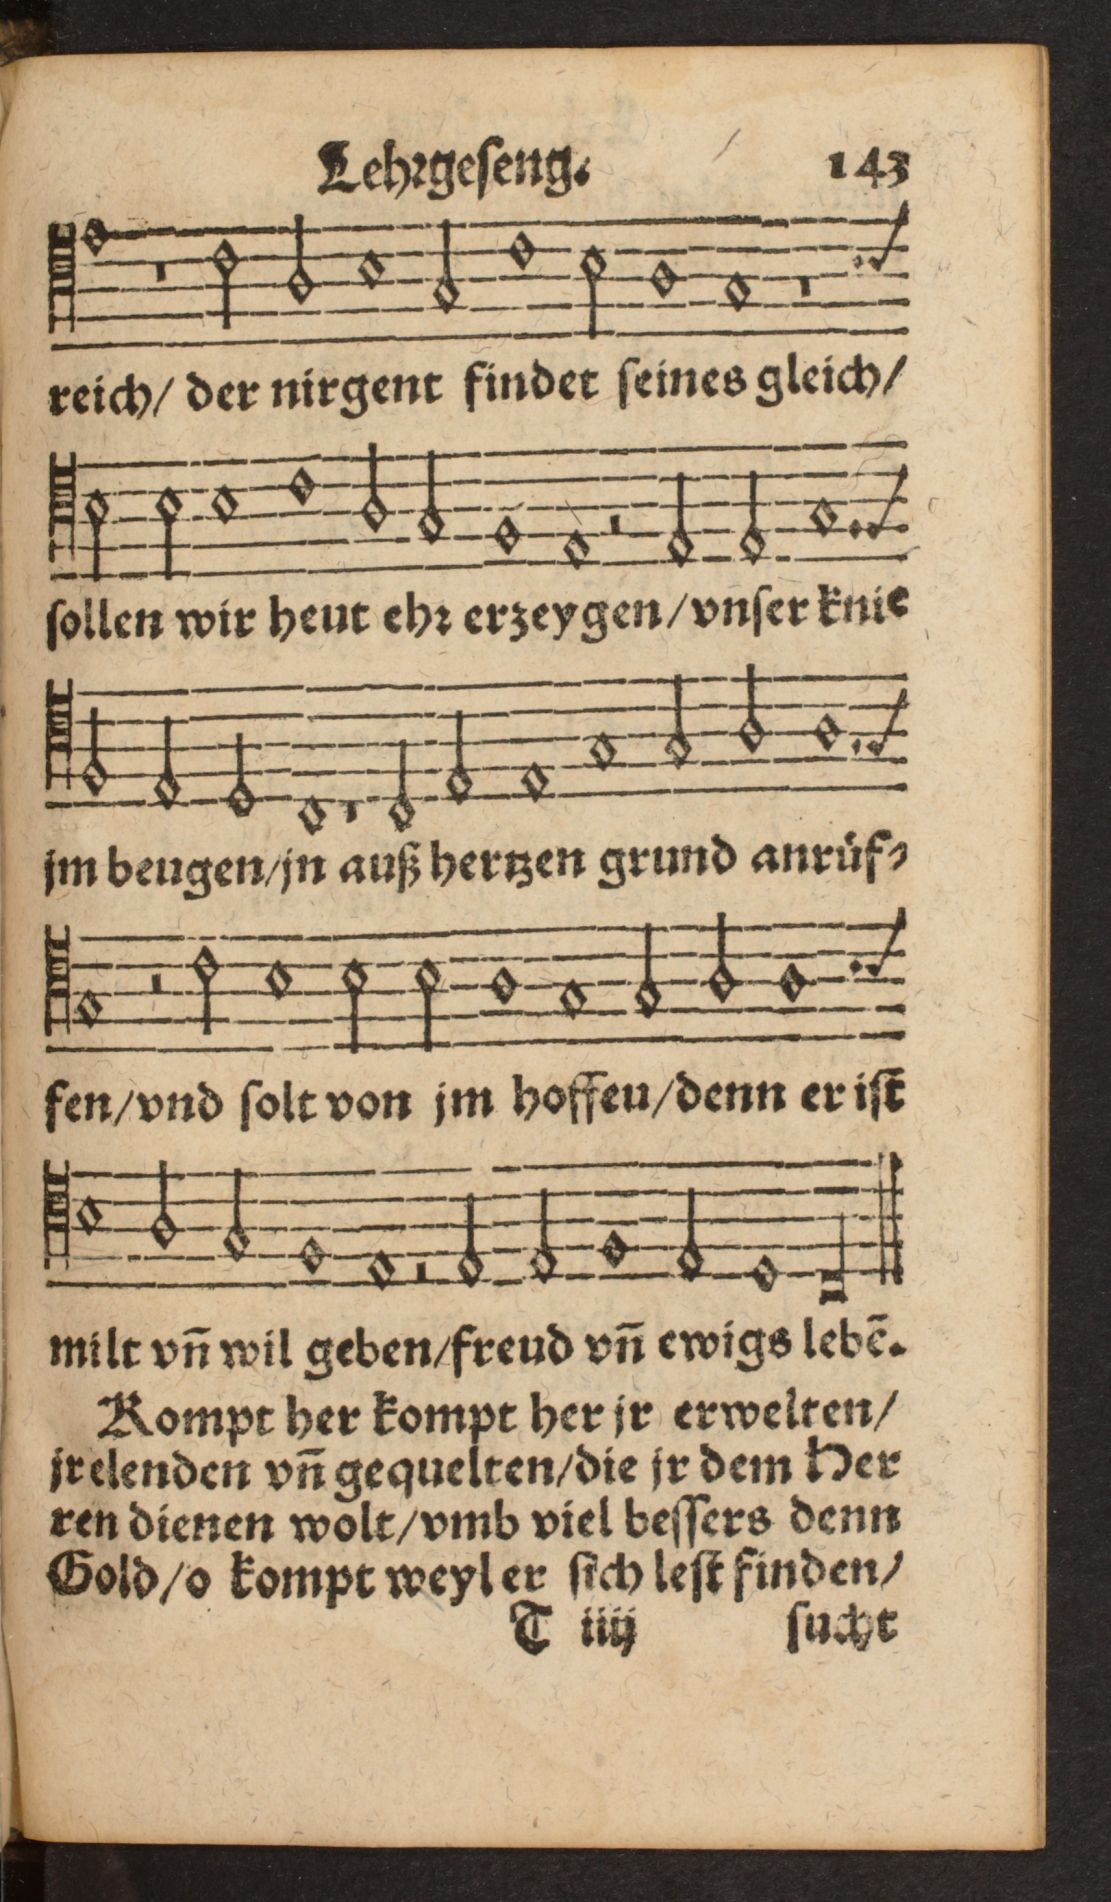 Lehrgeseng. 143
reich/ der nirgent findet seines gleich/
sollen wir heut ehr erzeygen/vnser knie
jm beugen/jn auß hertzen grund anrüf⸗
fen/vnd solt von jm hoffeu/denn er ist
milt vñ wil geben/freud vñ ewigs lebẽ.
Kompt her kompt her jr erwelten/
jr elenden vñ gequelten/die jr dem Her
ren dienen wolt/vmb viel bessers denn
Gold/o kompt weyl er sich lest finden/
T iiij sucht